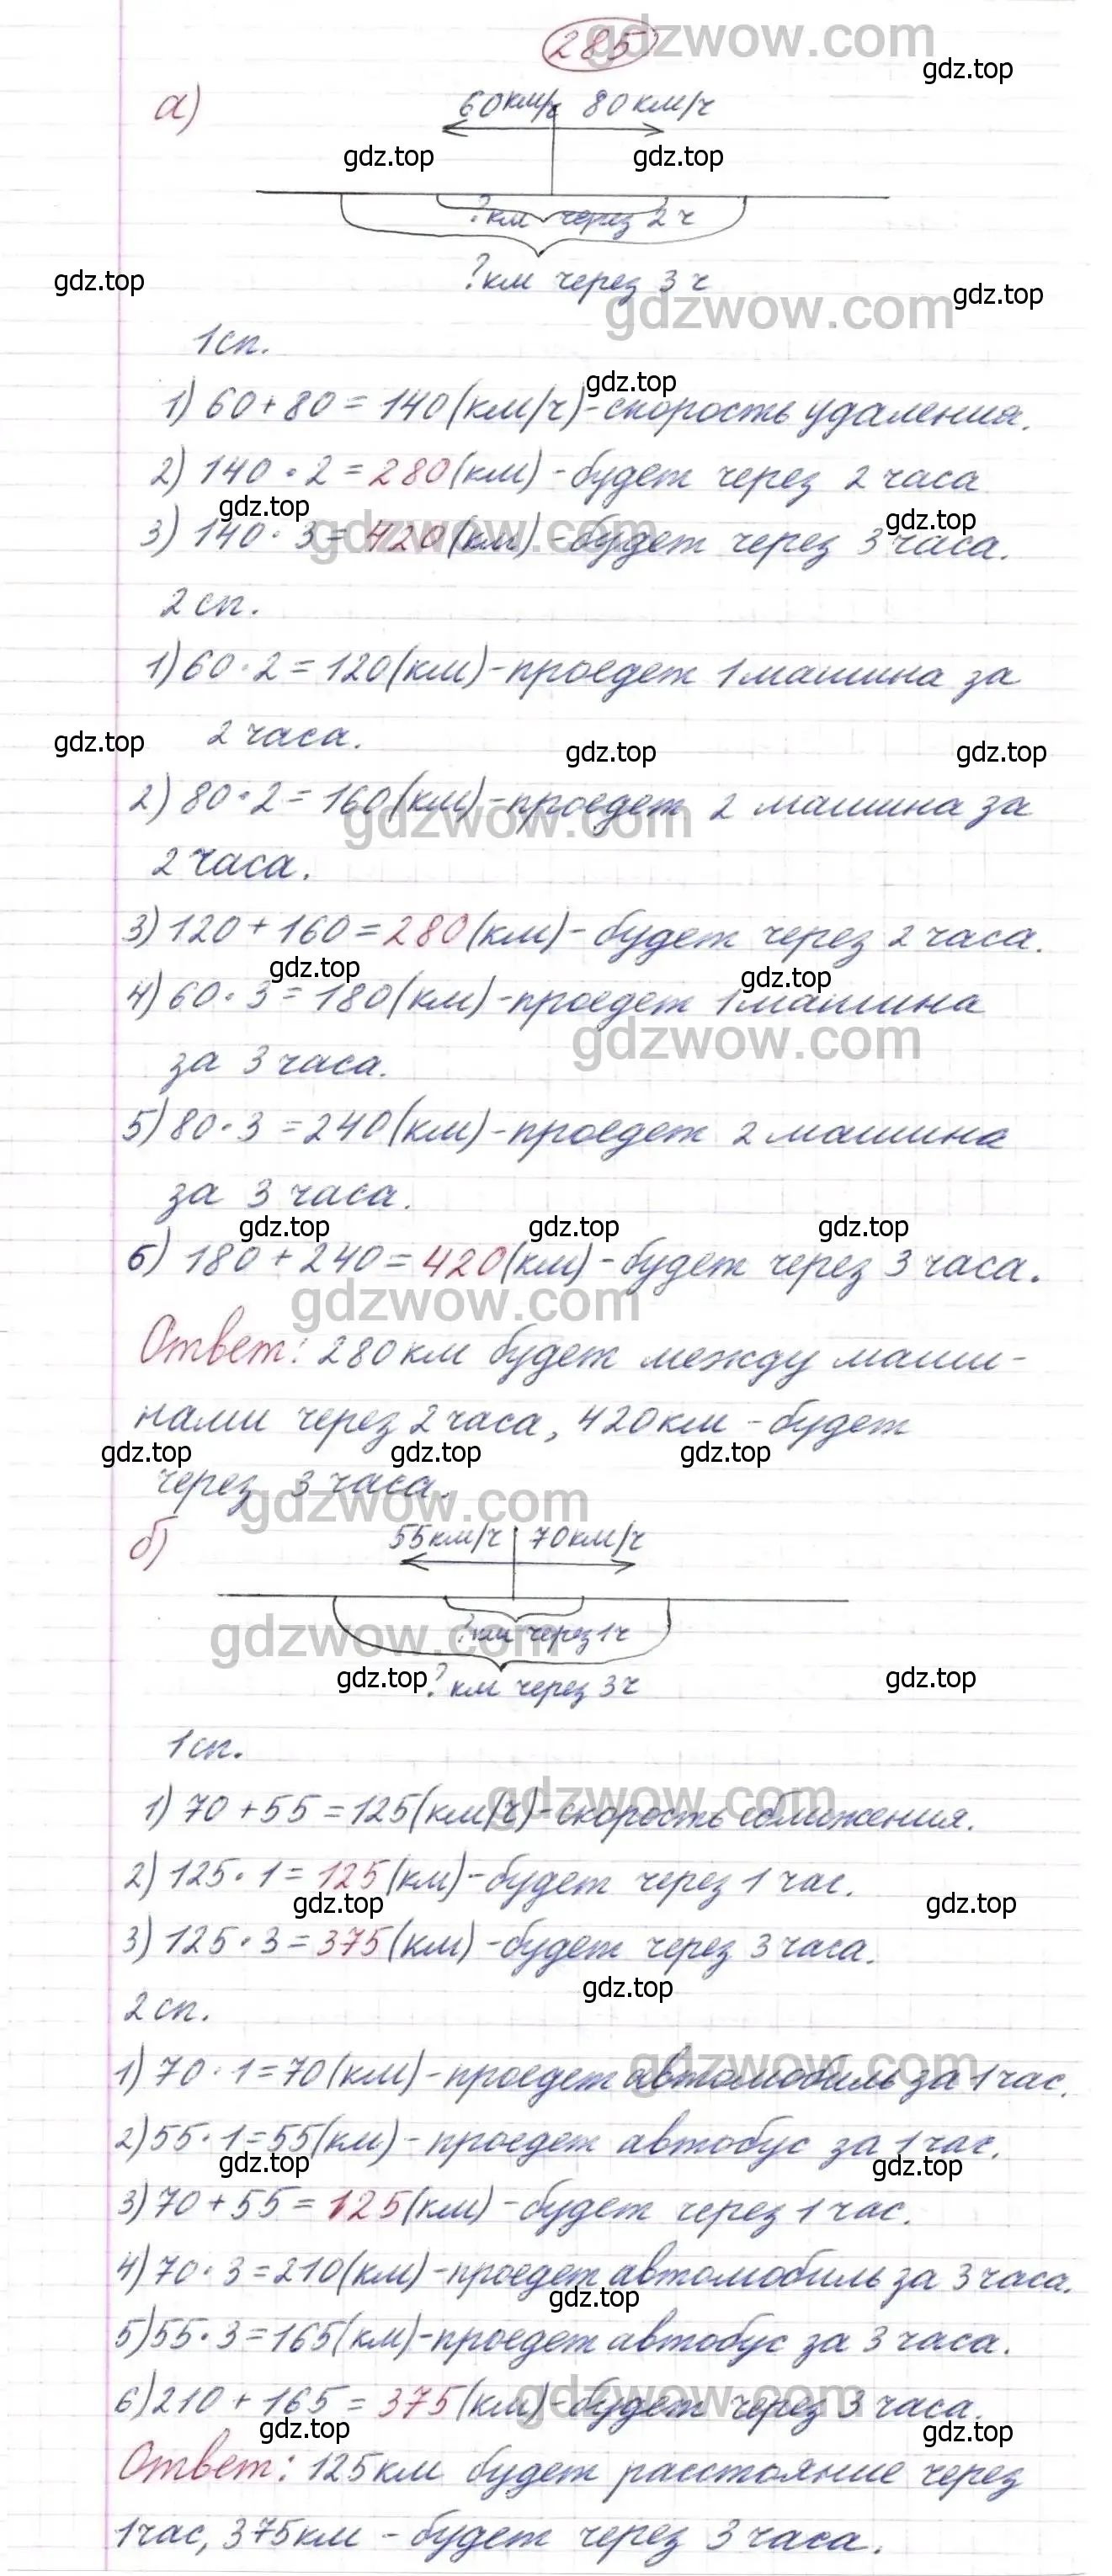 285
gdzwow.com
gdz.top
а)
60км/ч 80км/ч
gdz.top gdz.top
?км через 2ч
gdz.top
?км через 3ч
gdz.top
gdzwow.com
1сп.
gdz.top
1) 60+80=140(км/ч)-скорость удаления.
2) 140·2=280(км)-будет через 2 часа
gdz.top gdzwow.com gdz.top
3) 140·3=420(км)-будет через 3 часа.
2сп.
1) 60·2=120(км)-проедет 1 машина за
2 часа.
gdz.top gdz.top gdz.top
2) 80·2=160(км)-проедет 2 машина за
gdzwow.com
2 часа.
3) 120+160=280(км)-будет через 2 часа.
gdz.top gdz.top
4) 60·3=180(км)-проедет 1 машина
gdzwow.com
за 3 часа.
5) 80·3=240(км)-проедет 2 машина
за 3 часа.
gdz.top gdz.top gdz.top
6) 180+240=420(км)-будет через 3 часа.
gdzwow.com
Ответ: 280км будет между маши-
нами через 2 часа, 420км-будет
gdz.top gdz.top gdz.top
через 3 часа.
gdzwow.com
б)
55км/ч 70км/ч
gdzwow.com
?км через 1ч
gdz.top gdz.top
?км через 3ч
1сп.
gdzwow.com
1) 70+55=125(км/ч)-скорость сближения.
2) 125·1=125(км)-будет через 1 час.
gdz.top gdz.top
3) 125·3=375(км)-будет через 3 часа.
gdz.top
2сп.
gdzwow.com
1) 70·1=70(км)-проедет автомобиль за 1 час.
2) 55·1=55(км)-проедет автобус за 1 час.
gdz.top gdz.top
3) 70+55=125(км)-будет через 1 час.
4) 70·3=210(км)-проедет автомобиль за 3 часа.
gdz.top
5) 55·3=165(км)-проедет автобус за 3 часа.
6) 210+165=375(км)-будет через 3 часа.
gdzwow.com
gdz.top gdz.top
Ответ: 125км будет расстояние через
1 час, 375км-будет через 3 часа.